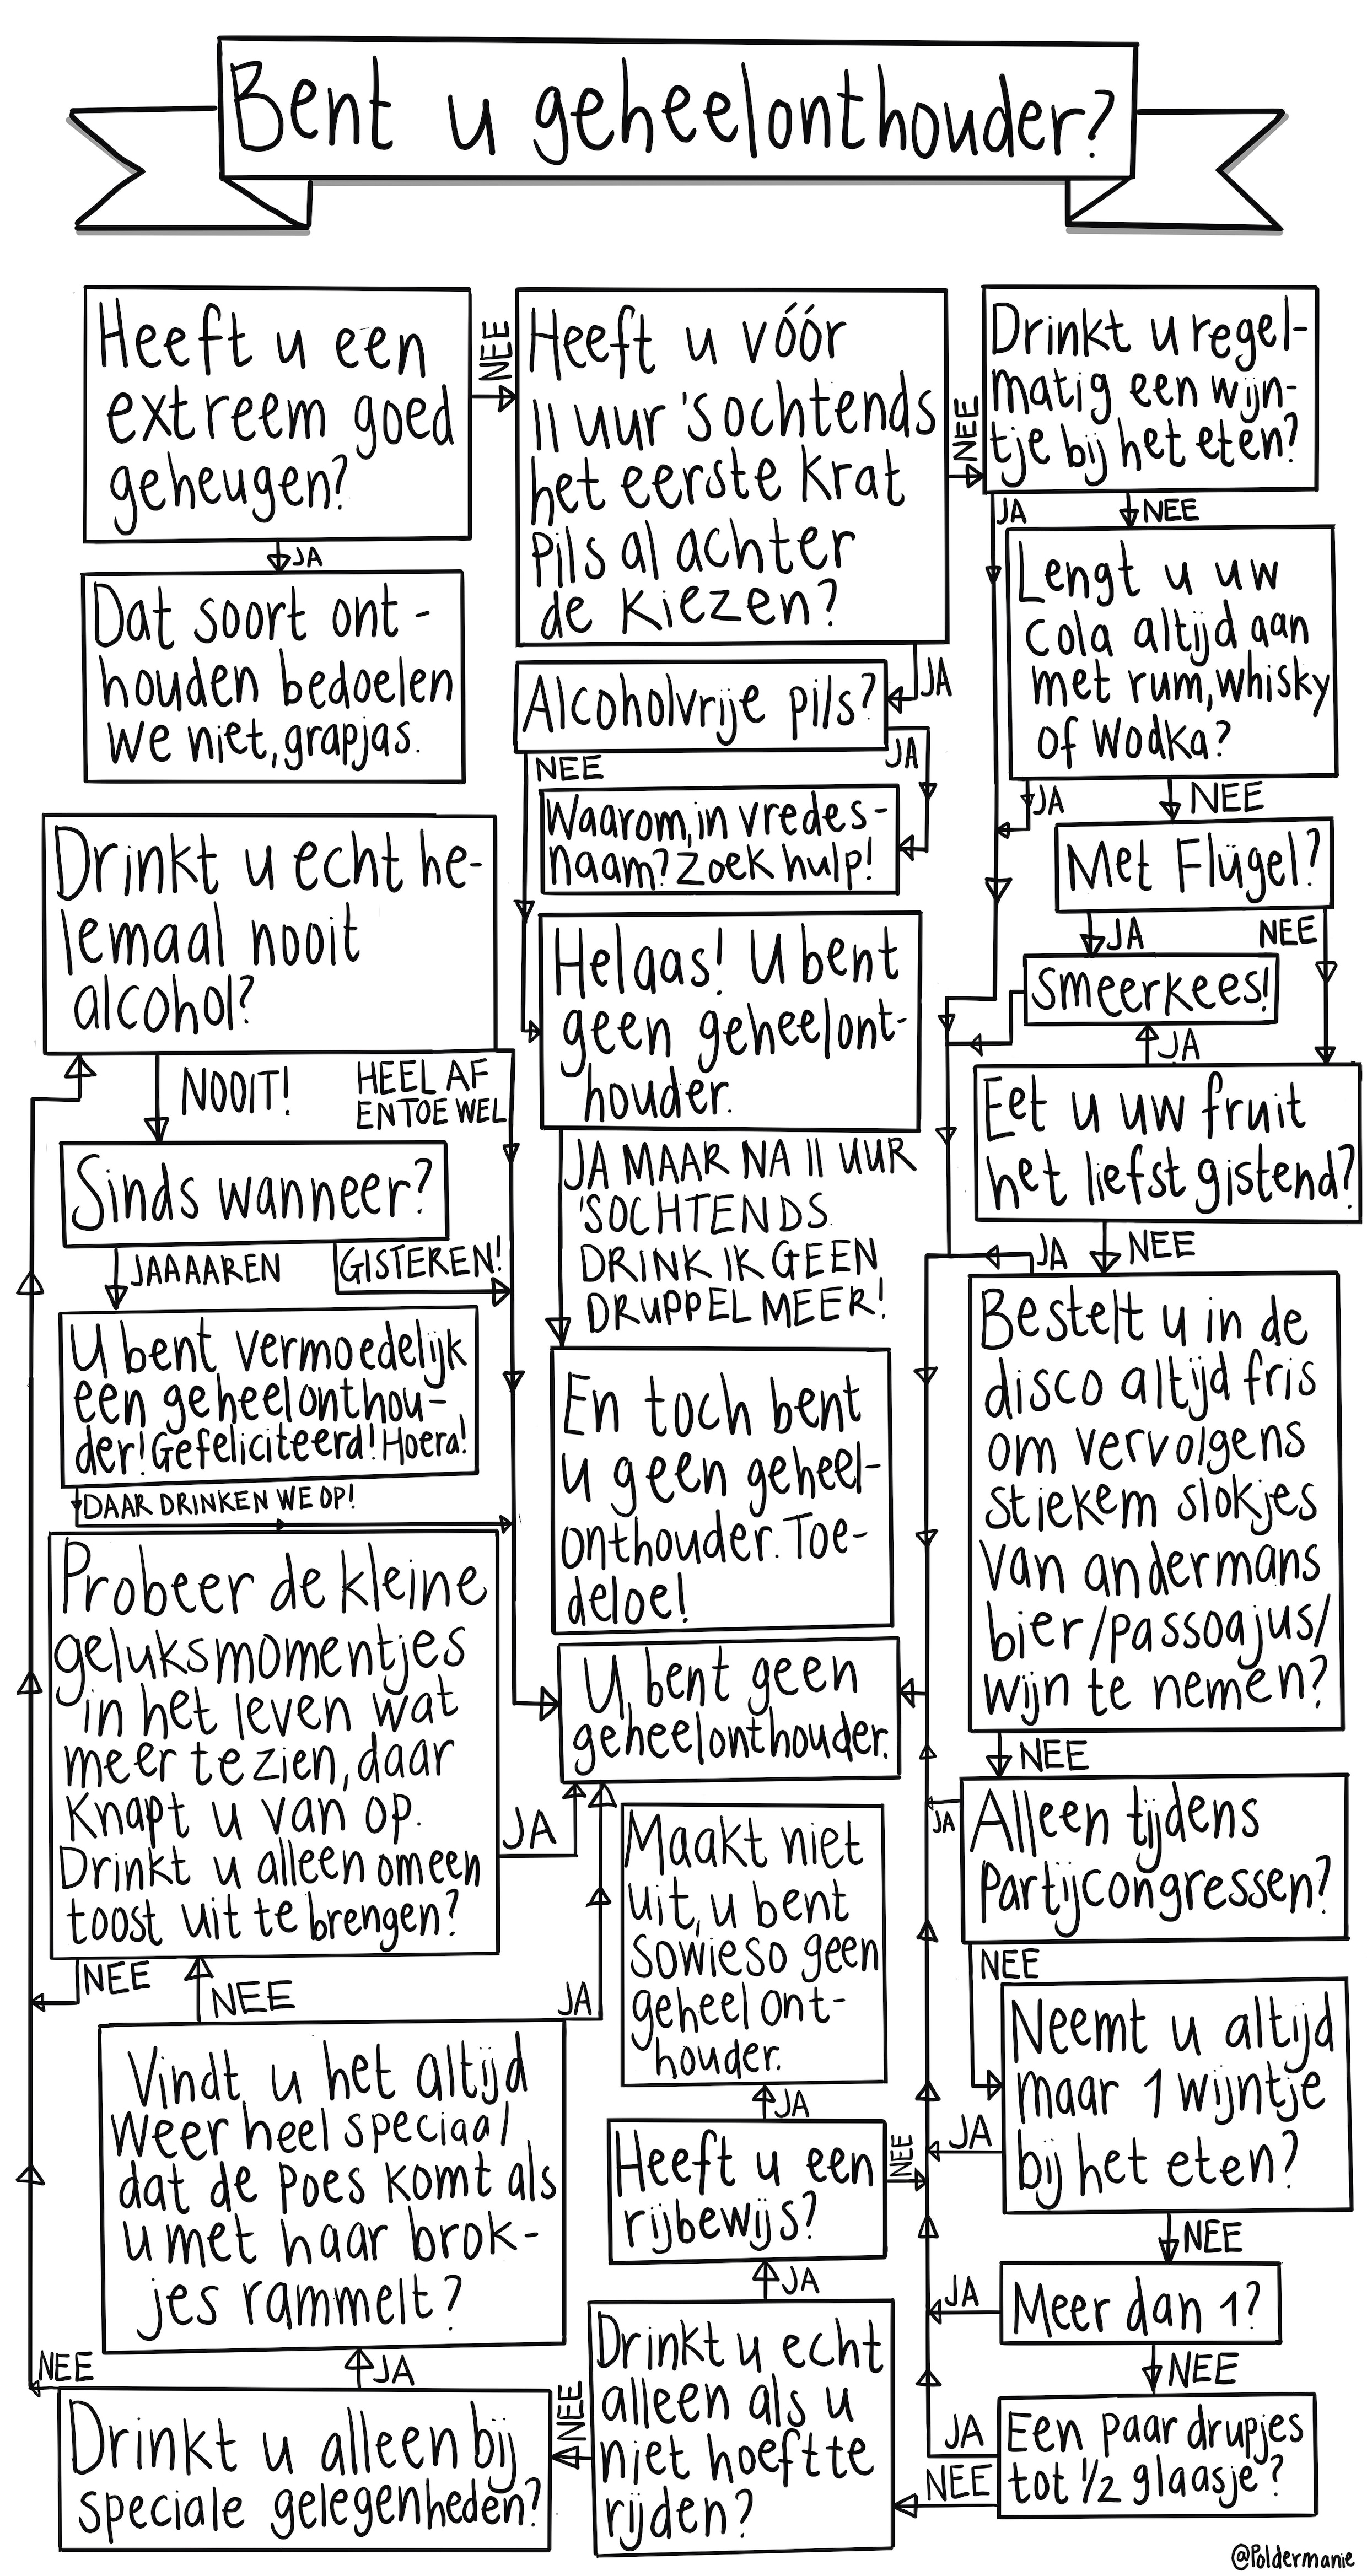 Bent u geheelonthouder?
Heeft u een
extreem goed
geheugen?
NEE
JA
Dat soort ont-
houden bedoelen
we niet, grapjas.
Heeft u vóór
11 uur 's ochtends
het eerste krat
pils al achter
de kiezen?
NEE
JA
Alcoholvrije pils?
JA
NEE
Waarom, in vredes-
naam? Zoek hulp!
Helaas! U bent
geen geheelont-
houder.
JA MAAR NA 11 UUR
'S OCHTENDS
DRINK IK GEEN
DRUPPEL MEER!
En toch bent
u geen geheel-
onthouder. Toe-
deloe!
Drinkt u regel-
matig een wijn-
tje bij het eten?
JA
NEE
Lengt u uw
cola altijd aan
met rum, whisky
of wodka?
JA
NEE
Met Flügel?
JA
NEE
Smeerkees!
JA
Eet u uw fruit
het liefst gistend?
JA
NEE
Bestelt u in de
disco altijd fris
om vervolgens
stiekem slokjes
van andermans
bier/passoajus/
wijn te nemen?
NEE
Alleen tijdens
partijcongressen?
JA
NEE
Neemt u altijd
maar 1 wijntje
bij het eten?
JA
NEE
Meer dan 1?
JA
NEE
Een paar drupjes
tot 1/2 glaasje?
JA
NEE
Drinkt u echt
alleen als u
niet hoeft te
rijden?
JA
NEE
Heeft u een
rijbewijs?
NEE
JA
Maakt niet
uit, u bent
sowieso geen
geheelont-
houder.
U bent geen
geheelonthouder.
Drinkt u alleen bij
speciale gelegenheden?
NEE
JA
Vindt u het altijd
weer heel speciaal
dat de poes komt als
u met haar brok-
jes rammelt?
JA
NEE
Probeer de kleine
geluksmomentjes
in het leven wat
meer te zien, daar
knapt u van op.
Drinkt u alleen om een
toost uit te brengen?
JA
NEE
Drinkt u echt he-
lemaal nooit
alcohol?
NOOIT!
HEEL AF
EN TOE WEL
Sinds wanneer?
JAAAAREN
GISTEREN!
U bent vermoedelijk
een geheelonthou-
der! Gefeliciteerd! Hoera!
DAAR DRINKEN WE OP!
@Poldermanie